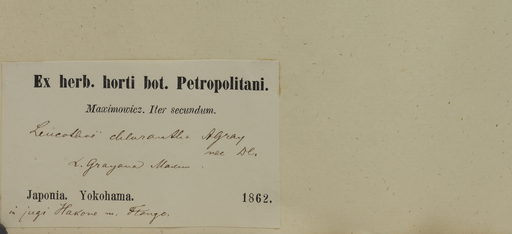 Ex herb. horti bot. Petropolitani.
Maximowicz. Iter secundum.
Leucothoë chlorantha AGray
nec DC.
L. Grayana Maxim.
Japonia. Yokohama. 1862.
in jugi Hakone m.